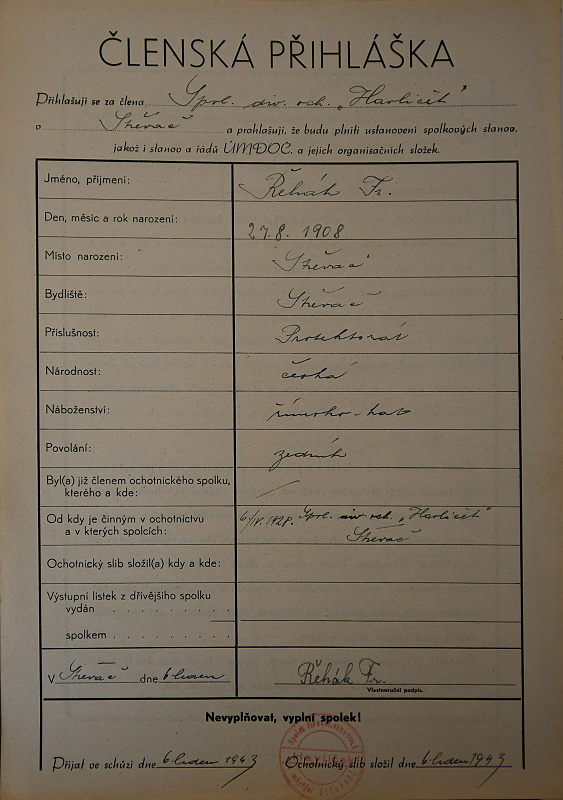 ČLENSKÁ PŘIHLÁŠKA
Přihlašuji se za člena Spol. div. och. „Havlíček"
v Stěvač a prohlašuji, že budu plniti ustanovení spolkových stanov,
jakož i stanov a řádů ÚMDOČ, a jejich organisačních složek.
Jméno, příjmení: Řehák Fr.
Den, měsíc a rok narození: 27. 8. 1908
Místo narození:
Bydliště:
Příslušnost: Protektorát
Národnost: česká
Náboženství: římsko-kat
Povolání: zedník
Byl(a) již členem ochotnického spolku, /
kterého a kde:
Od kdy je činným v ochotnictvu 6/IV. 1928. Spol. div. och. „Havlíček"
a v kterých spolcích:
Ochotnický slib složil(a) kdy a kde:
Výstupní lístek z dřívějšího spolku
vydán . . . . . . . . .
spolkem . . . . . . . . .
V dne 6. leden Řehák Fr.
Vlastnoruční podpis.
Nevyplňovat, vyplní spolek!
Přijat ve schůzi dne 6. leden 1943 Ochotnický slib složil dne 6. leden 1943